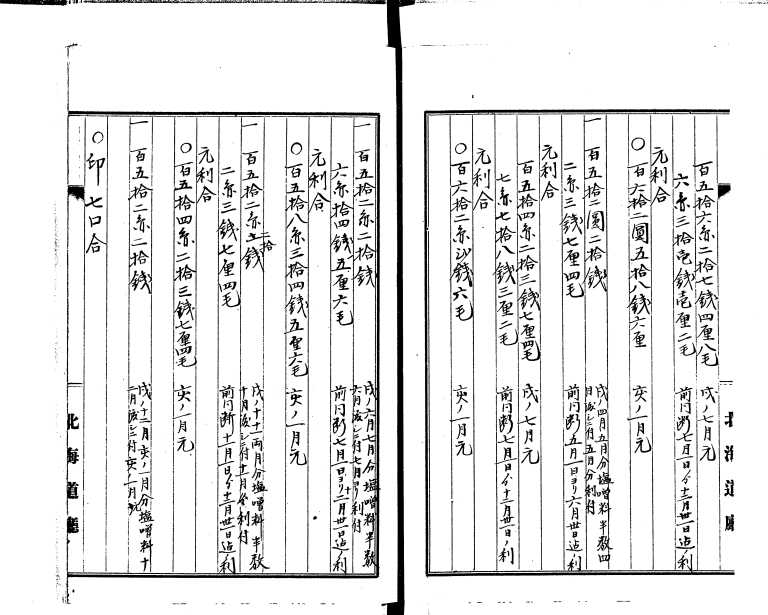 百五拾六円二拾七銭四厘八毛 戌ノ七月元
六円三拾壱銭壱厘二毛 前同断七月一日分十二月卅一日迠ノ利
元利合
〇百六拾二圓五拾八銭六厘 亥ノ一月元
一百五拾二圓二拾銭 戌ノ四月五月分塩噌料半数四
月渡シニ付五月分利付
二円三銭七厘四毛 前同断五月一日ヨリ六月卅日迠ノ利
元利合
百五拾四円二拾三銭七厘四毛 戌ノ七月元
七円七拾八銭三厘二毛 前同断七月一日分十二月卅一日ノ利
元利合
〇百六拾二円 銭六毛 亥ノ一月元
北海道廳
一百五拾二円二拾銭 戌ノ六月七月分塩噌料半数
六月渡シニ付七月ヨリ利付
六円拾四銭五厘六毛 前同断七月一日ヨリ十二月卅一日迠ノ利
元利合
〇百五拾八円三拾四銭五厘六毛 亥ノ一月元
一百五拾二円二拾銭 戌ノ十十一両月分塩噌料半数
十月渡シニ付十一月分利付
二円三銭七厘四毛 前同断十一月一日分十二月卅一日迠ノ利
元利合
〇百五拾四円二拾三銭七厘四毛 亥ノ一月元
一百五拾二円二拾銭 戌ノ十二月亥ノ一月分塩噌料十
二月渡シニ付亥ノ一月元
〇印 七口合
北海道廳